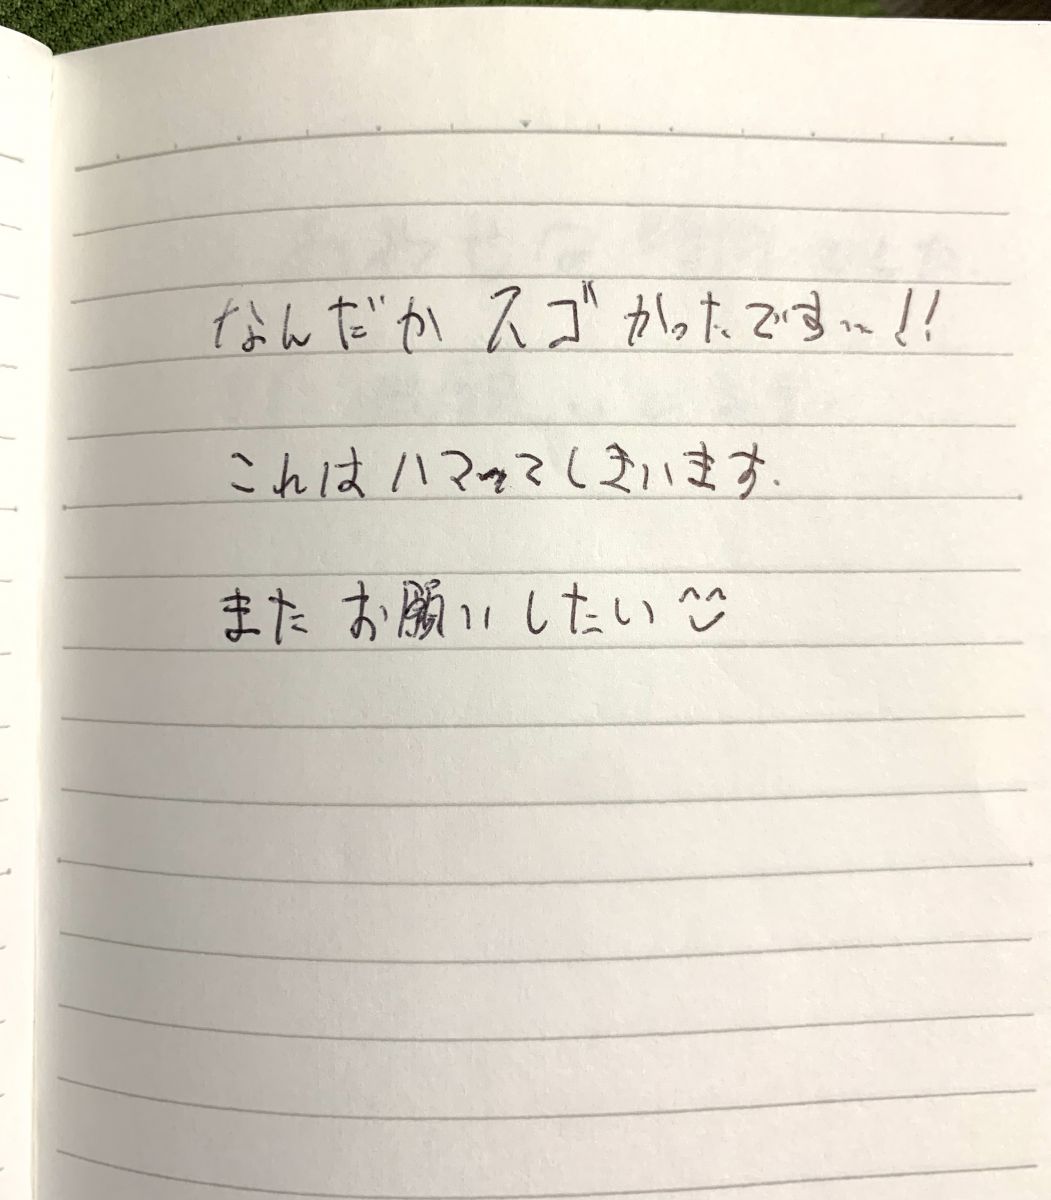 なんだか スゴかったです〜!!
これは ハマってしまいます.
また お願いしたい ^^